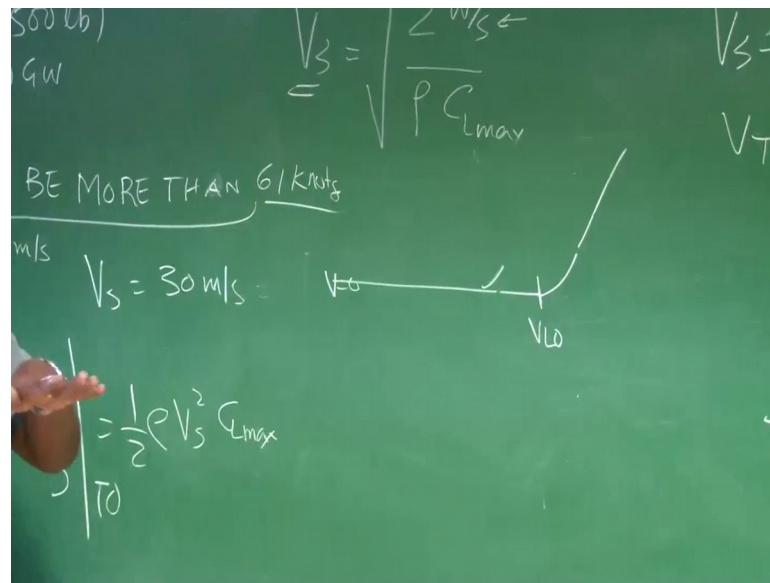 500 lb)
GW
V_S = √(2 W/S ← / ρ C_Lmax)
V_S =
V_T
BE MORE THAN 61 Knots
m/s
V_S = 30 m/s =
V=0
V_LO
= 1/2 ρ V_S^2 C_Lmax
TO